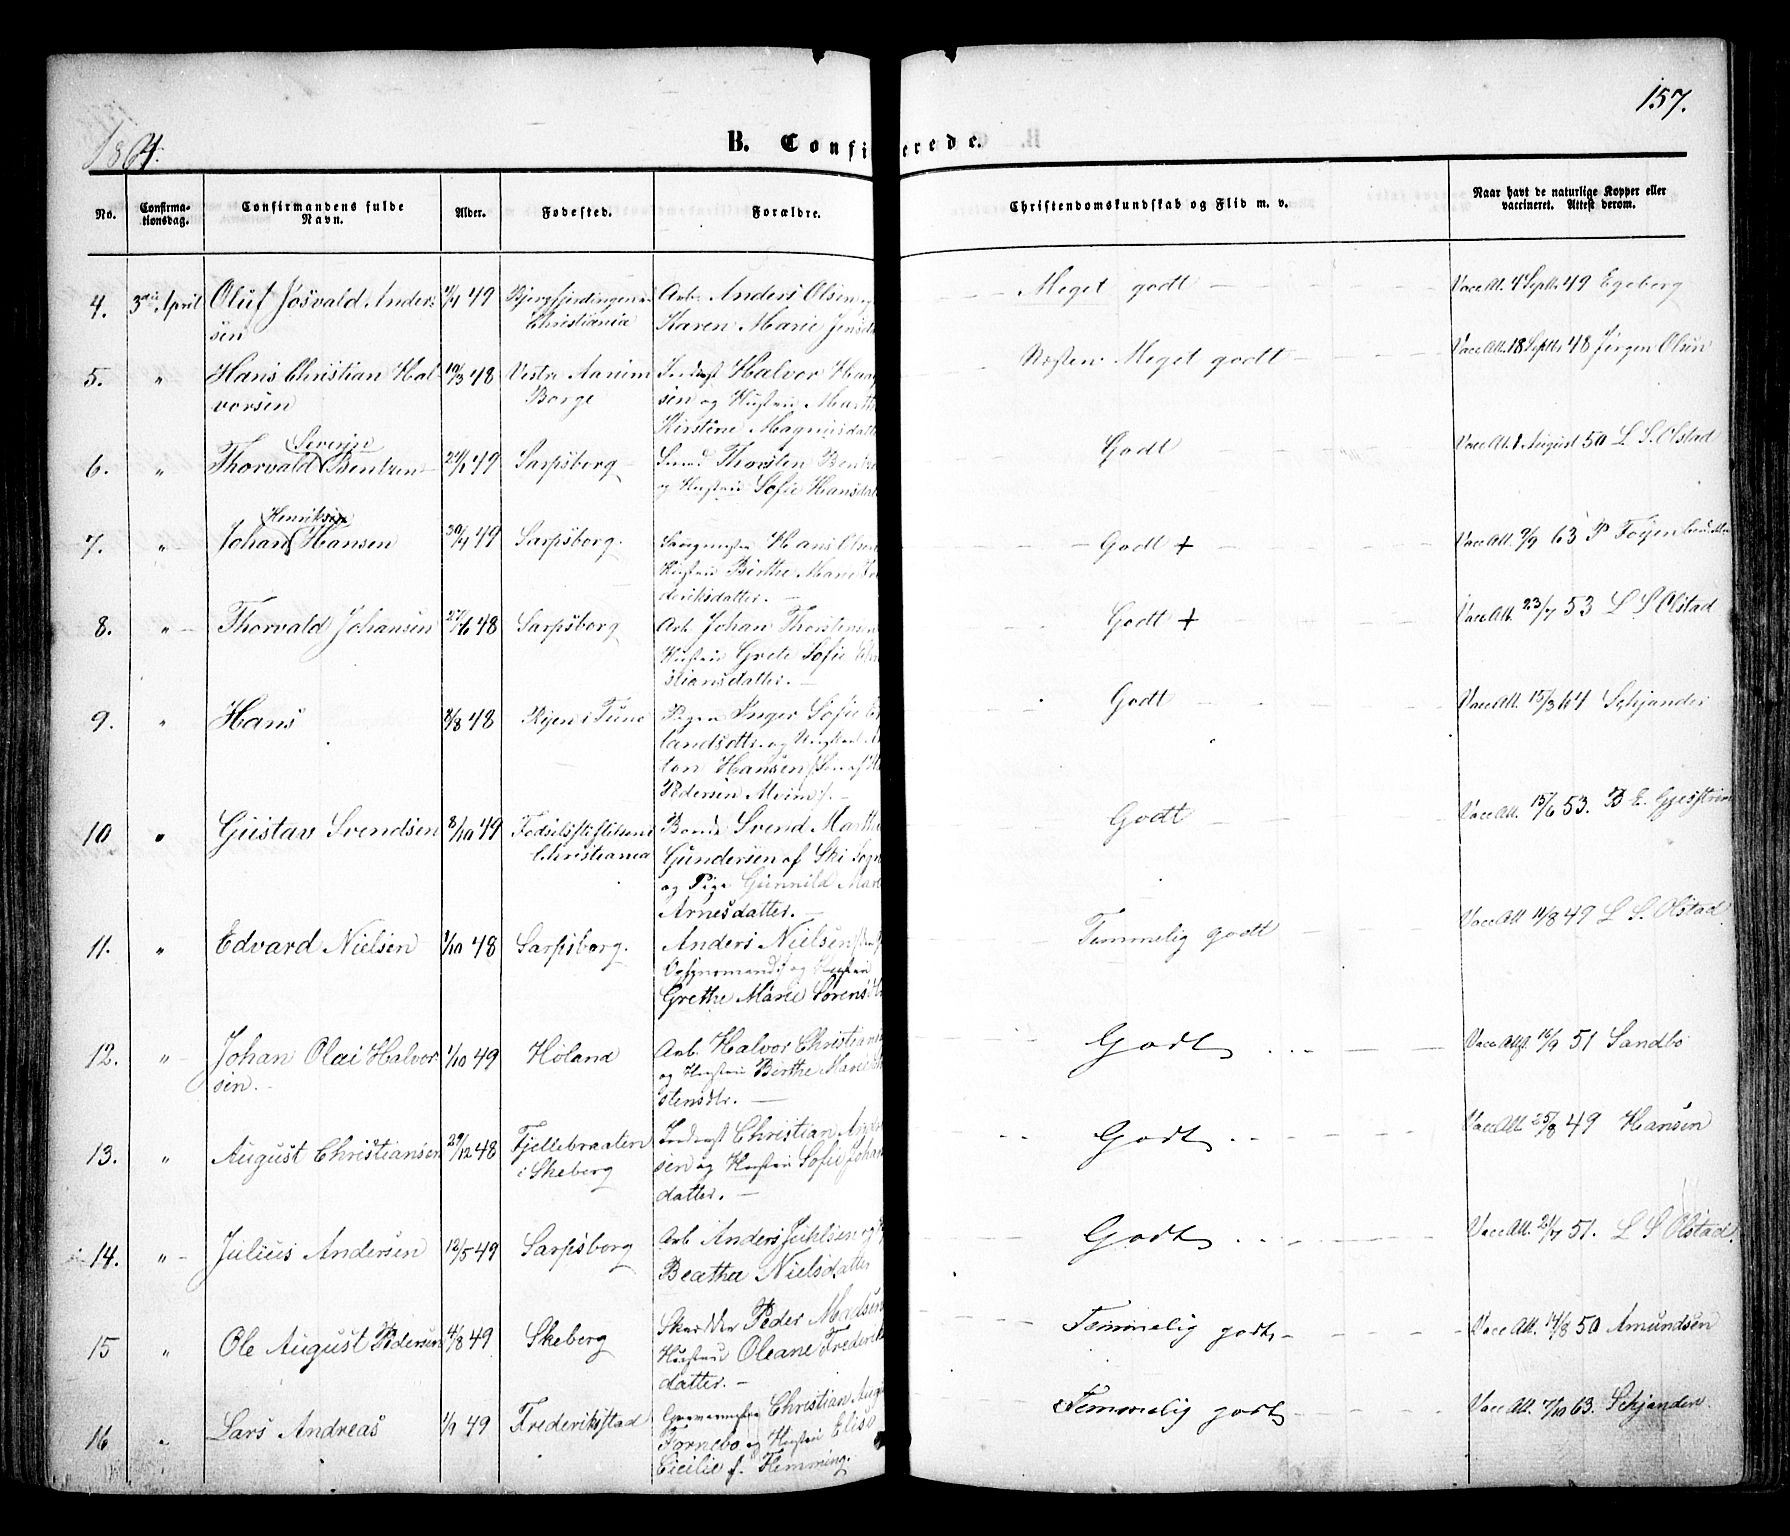 157.
1864.
B. Confirmerede.
No.
Confirma-
tionsdag.
Confirmandens fulde
Navn.
Alder.
Fødested.
Forældre.
Christendomskundskab og Flid m. v.
Naar havt de naturlige Kopper eller
vaccineret. Attest derom.
4. 3die April Oluf Josvald Anders- 49 Christiania Arb. Anders Olsen og Meget godt Vacc Att. 4 Septb 49 Egeberg
sen Karen Marie Jens
5. " Hans Christian Hal- 19/3 48 Vestre Aanim Inderst Halvor Næsten Meget godt Vacc Att. 18 Septb 48 Jørgen Olsen
vorsen Borge sen og Hustru Marth
Kirstine Magnusdatter
Severin
6. " Thorvald Bentsen 49 Sarpsborg Smed Thorsten Bents Godt Vacc Att. 1 August 50 L S. Olstad
og Hustru Sofie Hansdat
Henriksen
7. " Johan Hansen 49 Sarpsborg. Hans Olsen Godt + Vacc Att. 9/9 63 P
Hustru Birthe Marie
deriksdatter.
8. " Thorvald Johansen 27/6 48 Sarpsborg Arb. Johan Thorstensen Godt + Vacc Att. 23/7 53 L S Olstad
Hustru Grete Sofie
stiansdatter.
9. " Hans /8 48 i Tune Pigen Inger Sofie Godt Vacc Att. 15/3 64 Schjander
landsdtr. og
ton Hansen
Pedersen Alvim
10 " Gustav Svendsen 8/10 49 Fødselsstiftelsen i Bonde Svend Marth Godt Vacc Att. 15/6 53. E.
Christiania Gundersen af Ski Sogn
og Pige Gunnild
Arnesdatter.
11. " Edvard Nielsen /10 48 Sarpsborg. Anders Nielsen Temmelig godt Vacc Att 11/8 49 L S. Olstad
og Hustru
Grethe Marie Sørens
12. " Johan Olai Halvor 1/10 49 Høland Arb. Halvor Christians Godt Vacc Att. 16/9 51 Sandbo
sen. og Hustru Birthe Marie
stensdtr.
13. " August Christiansen 29/12 48 Fjellebraaten Inderst Christian Godt Vacc Att. 25/8 49 Hansen
i Skeberg sen og Hustru Sofie Johan
datter.
14. " Julius Andersen 12/5 49 Sarpsborg Arb Anders Juhlsen og Godt Vacc Att. 21/7 51. L S Olstad.
Beathe Nielsdatter
15 " Ole August Pedersen 4/8 49 Skeberg Skrædder Peder Madsen Temmelig godt Vacc Att. 50 Amundsen
Hustru Oleane Frederik
datter.
16 " Lars Andreas 49 Frederikstad Christian Aug Temmelig godt Vacc Att. 7/10 63. Schjander.
Fornebo og Hustru Elise
Cicilie f. Flemming.